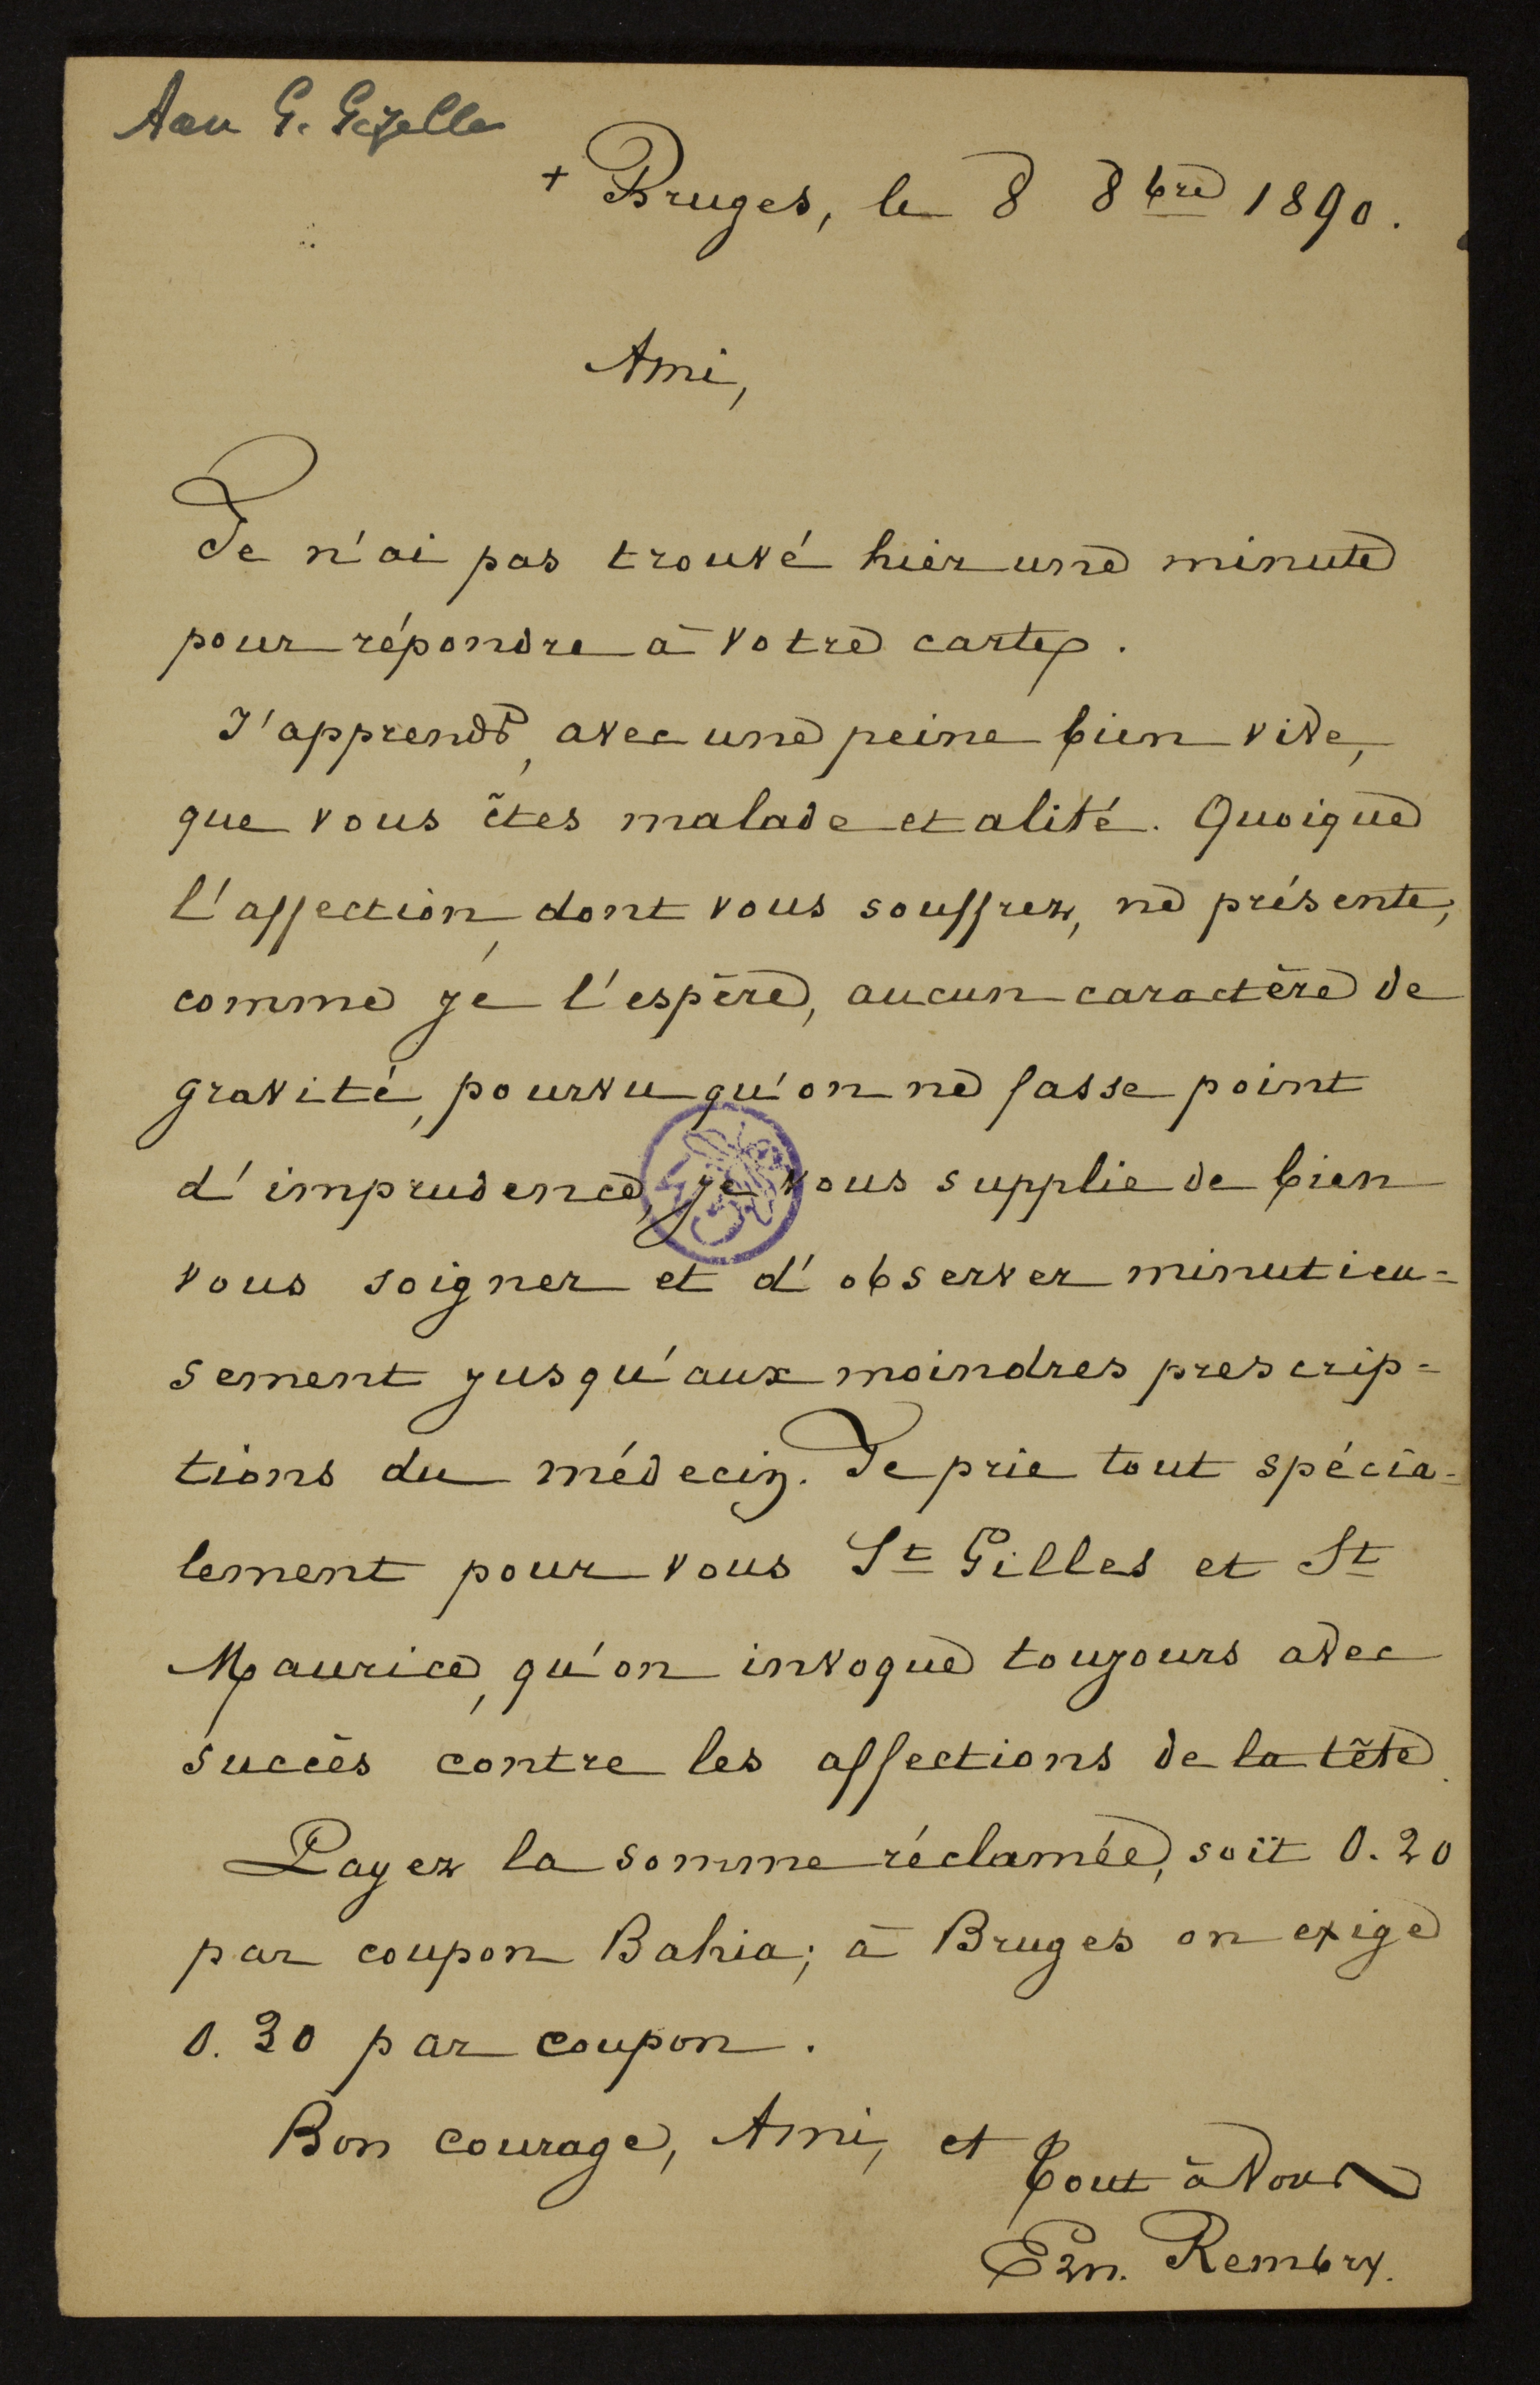 Aan G. Gezelle
+ Bruges, le 8 8bre 1890.
Ami,
Je n'ai pas trouvé hier une minute
pour répondre à votre carte.
J'apprends, avec une peine bien vive,
que vous êtes malade et alité. Quoique
l'affection, dont vous souffrez, ne présente,
comme je l'espère, aucun caractère de
gravité, pourvu qu'on ne fasse point
d'imprudence, je vous supplie de bien
vous soigner et d'observer minutieu=
sement jusqu'aux moindres prescrip=
tions du médecin. Je prie tout spécia=
lement pour vous St Gilles et St
Maurice, qu'on invoque toujours avec
succès contre les affections de la tête.
Payez la somme réclamée, soit 0.20
par coupon Bahia; à Bruges on exige
0.30 par coupon.
Bon courage, Ami, et
tout à vous
Ern. Rembry.